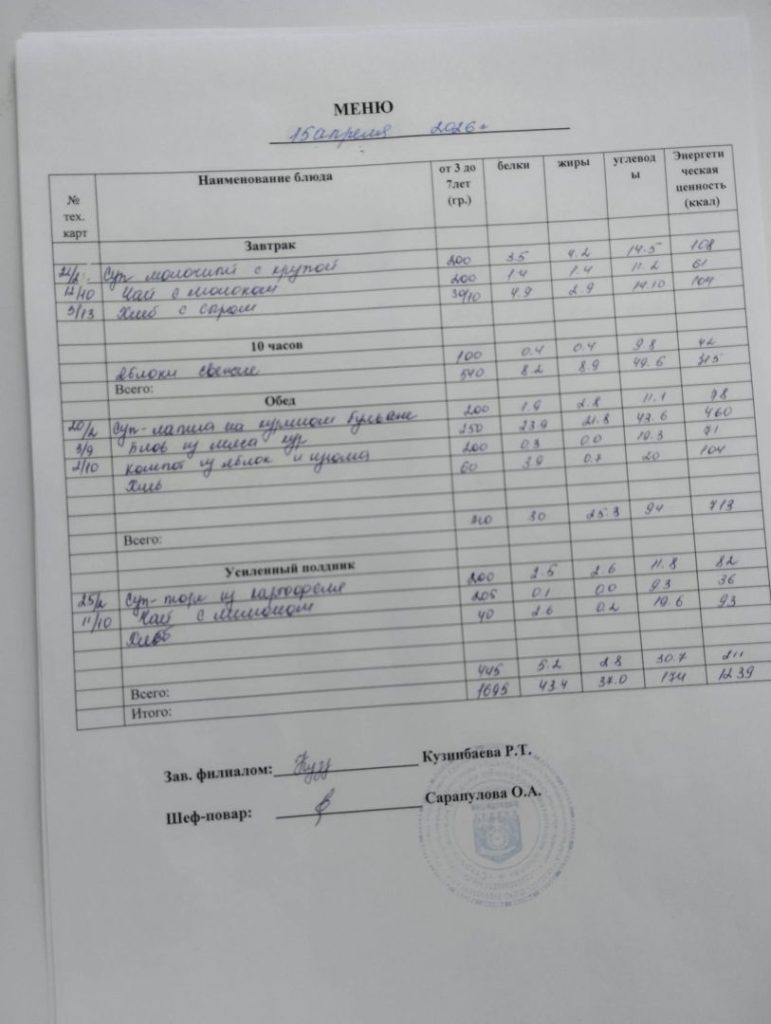 МЕНЮ
15 апреля 2026 г
№ тех. карт | Наименование блюда | от 3 до 7лет (гр.) | белки | жиры | углеводы | Энергетическая ценность (ккал)
Завтрак
Суп молочный с крупой 200 3.5 4.2 14.5 108
11/10 Чай с молоком 200 1.4 1.4 11.2 61
3/13 Хлеб с сыром 30/10 4.9 2.9 14.10 104
10 часов
Яблоки свежие 100 0.4 0.4 9.8 42
Всего: 540 8.2 8.9 49.6 315
Обед
20/2 Суп-лапша на курином бульоне 200 1.9 2.8 11.1 78
3/9 Плов из мяса кур 250 23.9 21.8 43.6 460
2/10 Компот из яблок и изюма 200 0.3 0.0 19.3 71
Хлеб 60 3.9 20 104
Всего: 30 25.3 94 713
Усиленный полдник
25/2 Суп-пюре из картофеля 200 2.5 2.6 11.8 82
11/10 Чай с лимоном 205 0.1 0.0 9.3 36
Хлеб 40 2.6 0.2 19.6 93
Всего: 445 5.2 2.8 30.7 211
Итого: 1695 43.4 37.0 174 1239
Зав. филиалом: Кузинбаева Р.Т.
Шеф-повар: Сарапулова О.А.